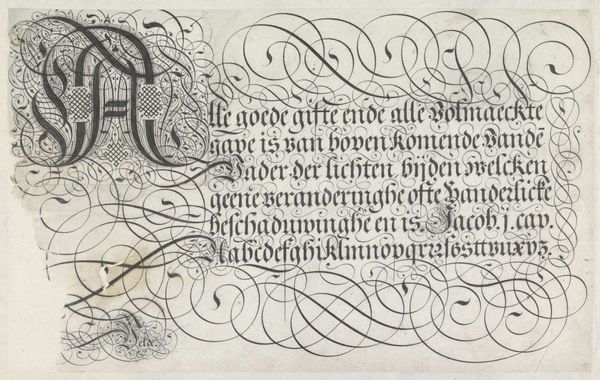 Alle goede gifte ende alle Volmaeckte
gave is van boven komende Vandē
Vader der lichten, bijden welcken
geene veranderinghe ofte Vanderlicke
beschaduwinghe en is. Jacob. j. cap.
Velde.